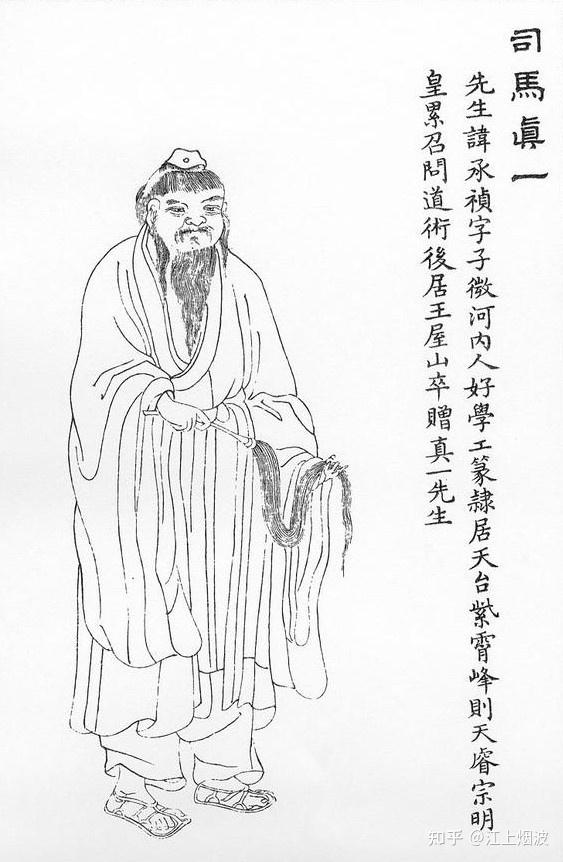 司馬眞一
先生諱承禎字子微河內人好學工篆隷居天台紫霄峰則天睿宗明
皇累召問道術後居王屋山卒贈真一先生
知乎 @江上烟波